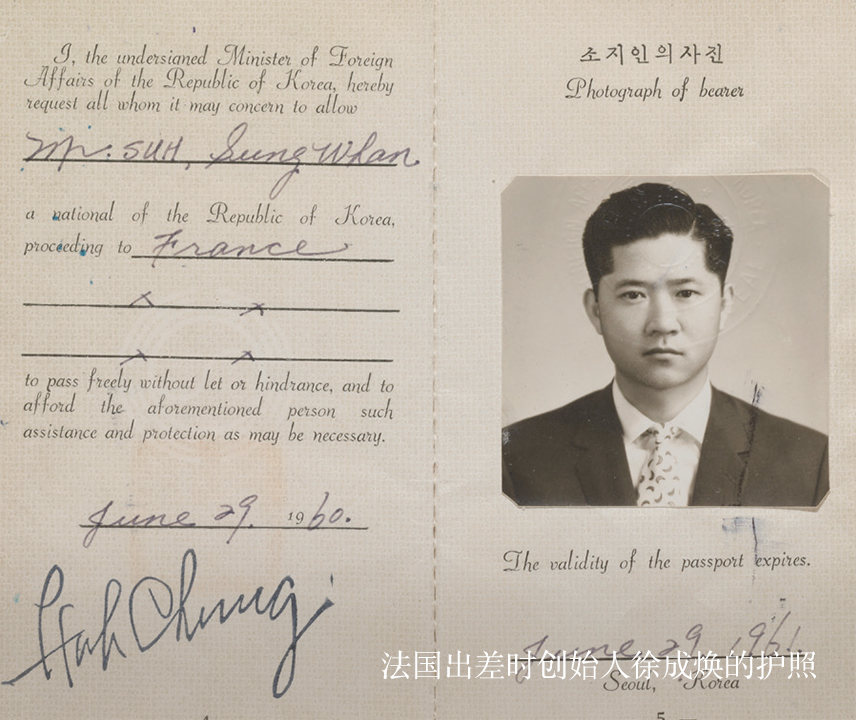 I, the undersianed Minister of Foreign
Affairs of the Republic of Korea, hereby
request all whom it may concern to allow
Mr. SUH, Sung Whan.
a national of the Republic of Korea,
proceeding to France
to pass freely without let or hindrance, and to
afford the aforementioned person such
assistance and protection as may be necessary.
June 29. 1960.
소지인의사진
Photograph of bearer
The validity of the passport expires.
June 29, 1961.
法国出差时创始人徐成焕的护照
Seoul, Korea
5